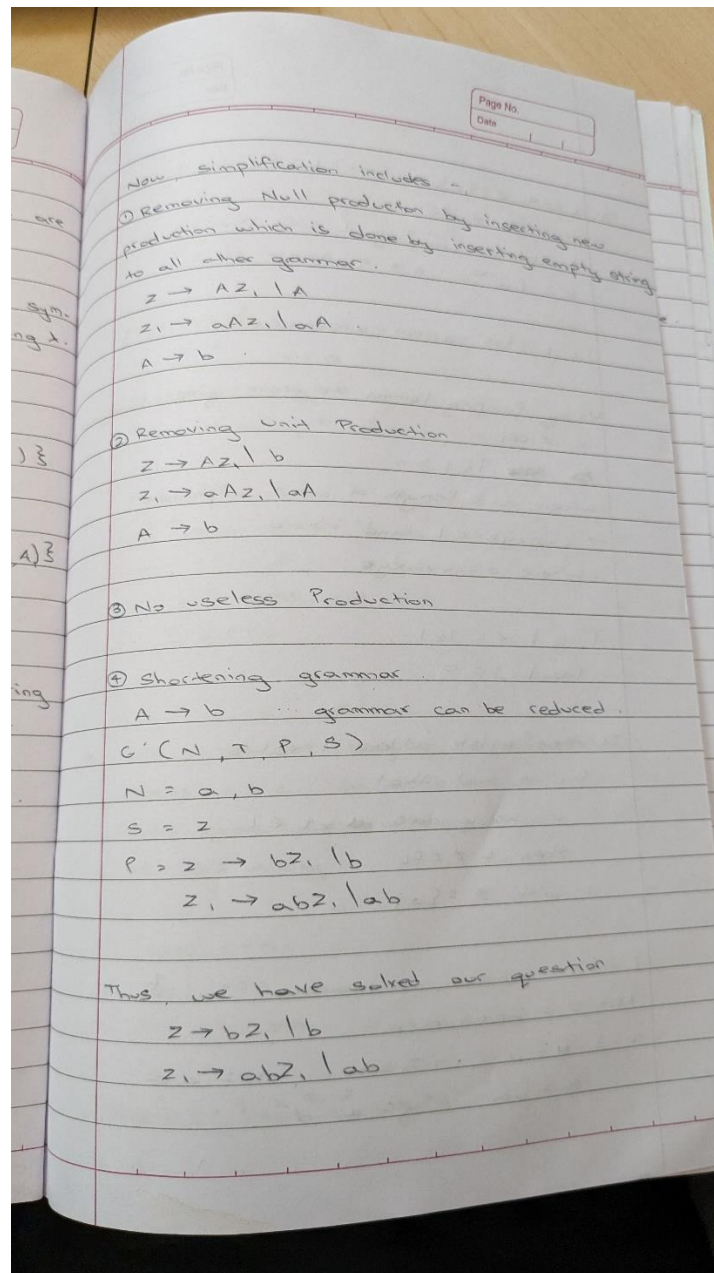 Page No.
Date
Now, simplification includes -
① Removing Null producton by inserting new
production which is done by inserting empty string
to all other gammer.
Z → AZ, \ A
Z, → aAZ, \ aA
A → b
② Removing Unit Production
Z → AZ, \ b
Z, → aAZ, \ aA
A → b
③ No useless Production
④ Shortening grammar.
A → b ... grammar can be reduced.
G' (N, T, P, S)
N = a, b
S = Z
P = Z → bZ, \ b
Z, → abZ, \ ab
Thus, we have solved our question
Z → bZ, \ b
Z, → abZ, \ ab
are
sym.
ng λ.
) }
A) }
ing